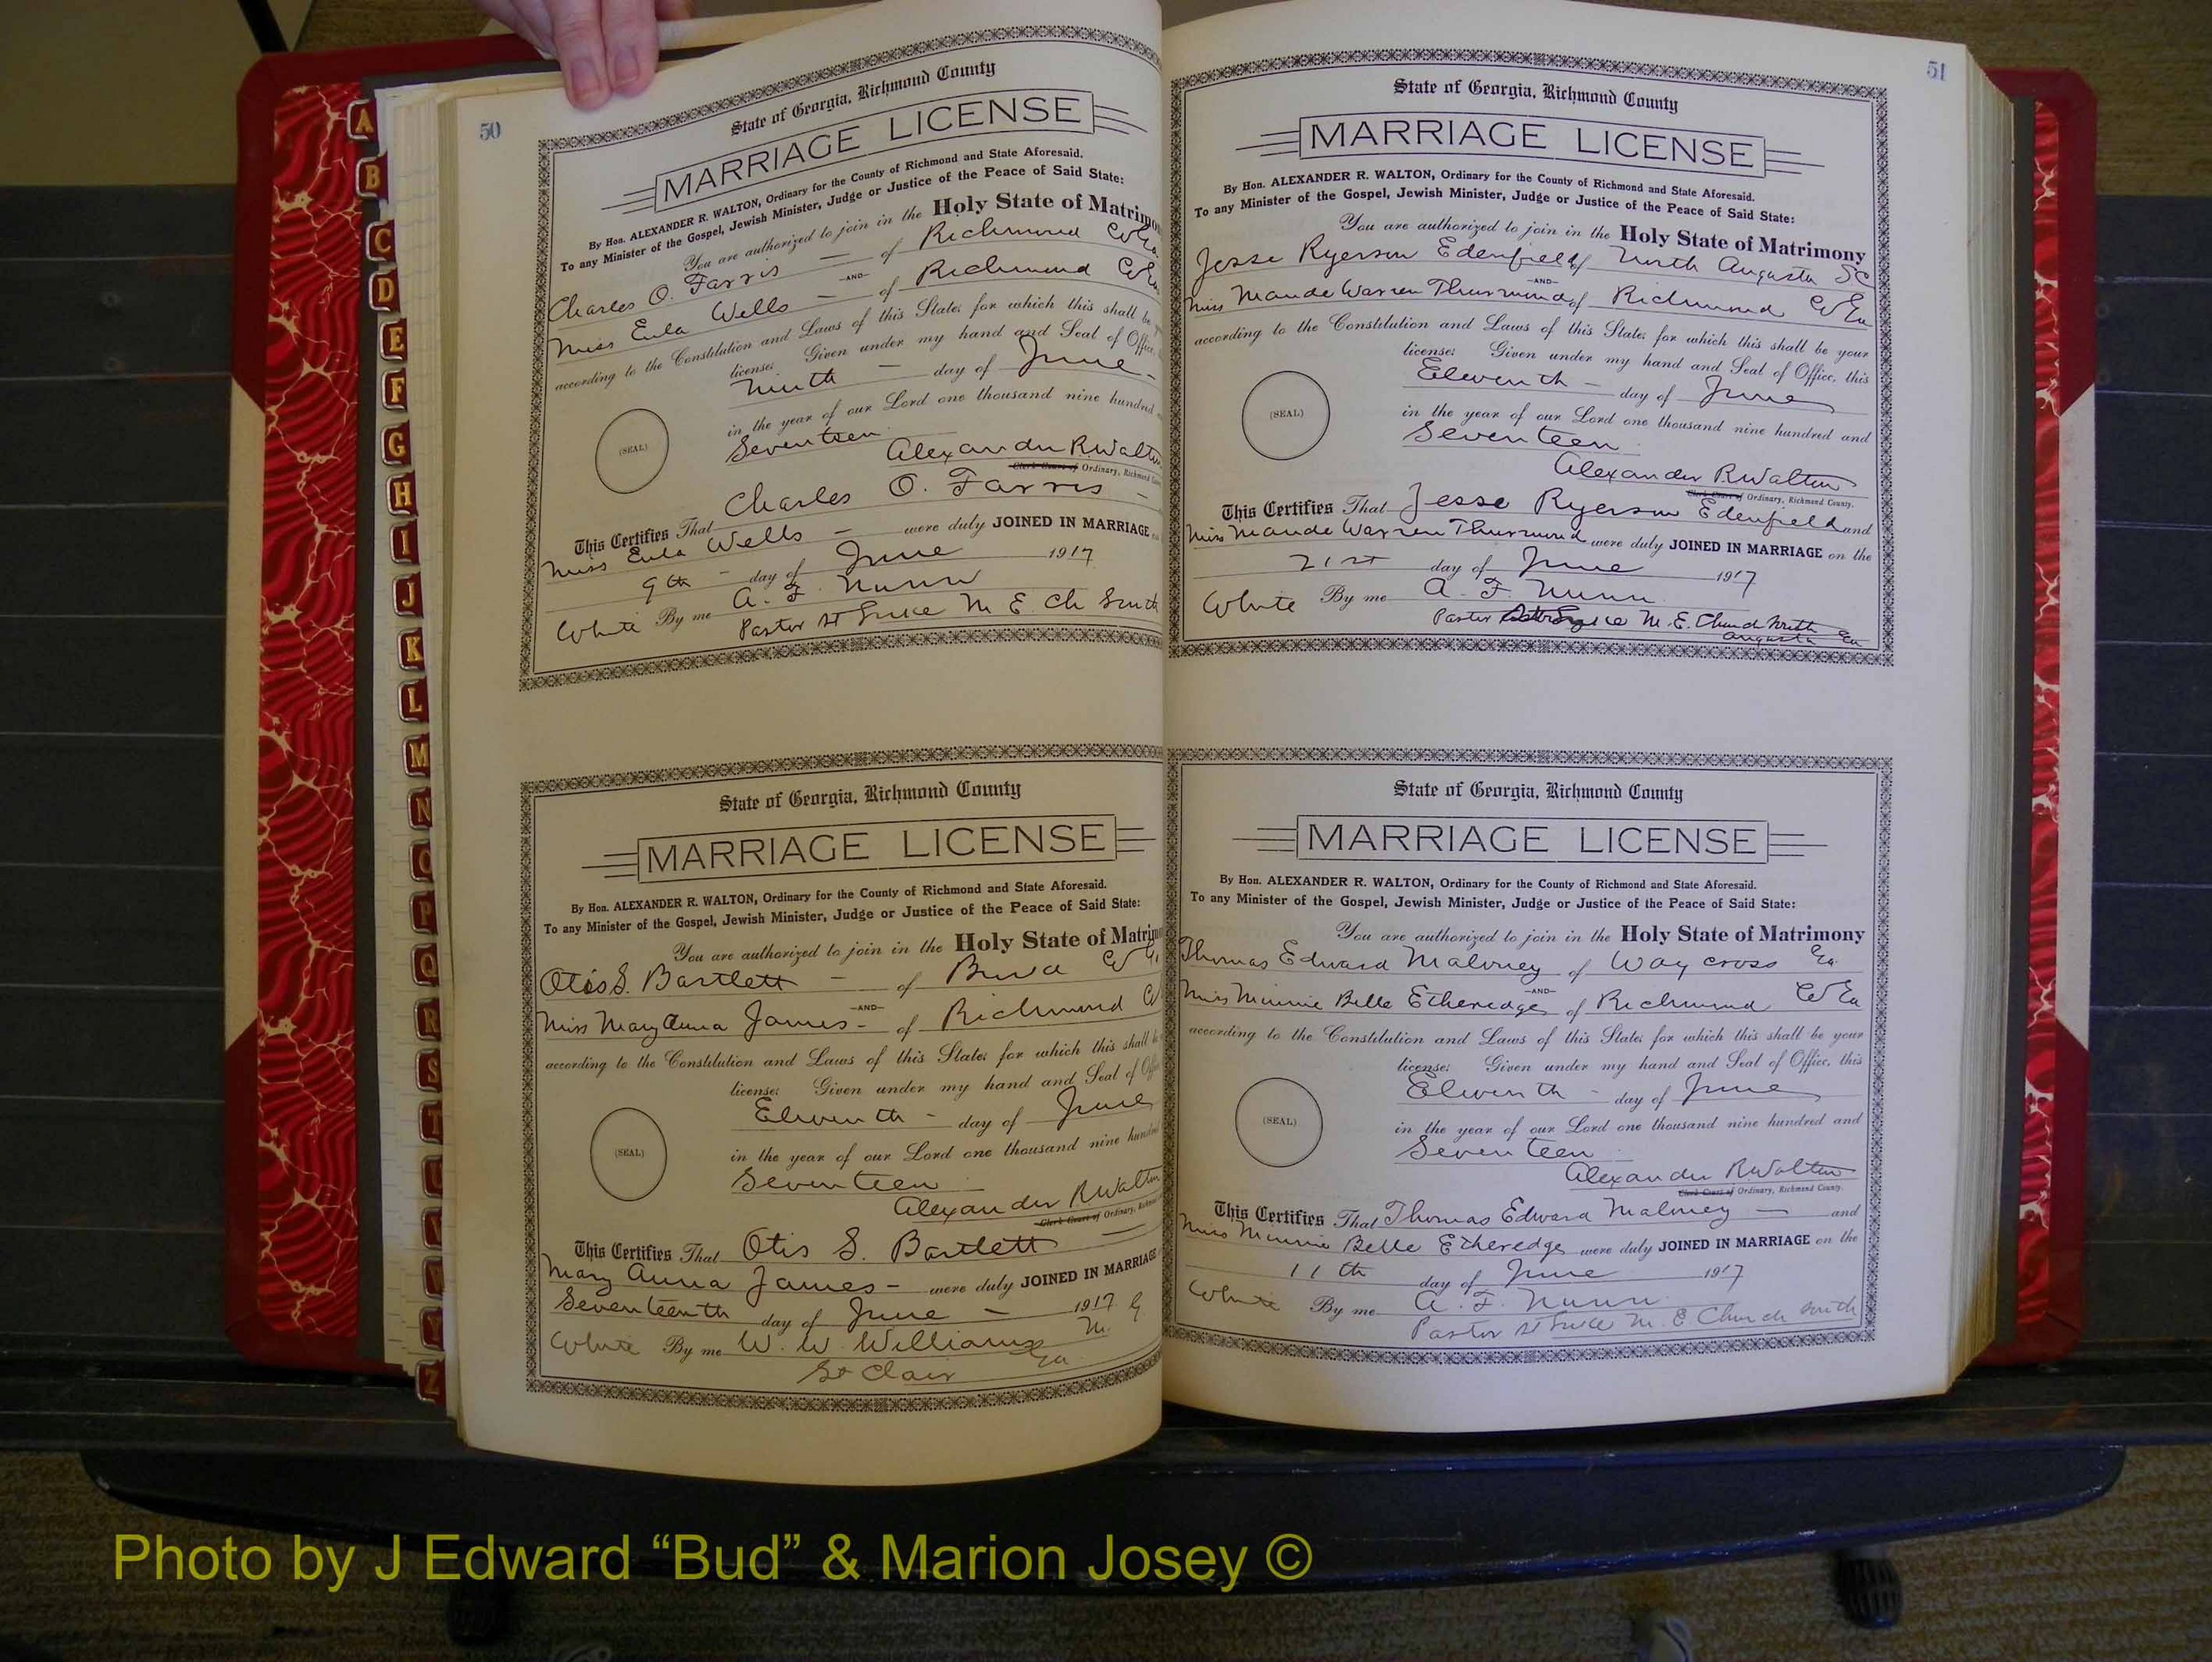 50
State of Georgia, Richmond County
MARRIAGE LICENSE
By Hon. ALEXANDER R. WALTON, Ordinary for the County of Richmond and State Aforesaid.
To any Minister of the Gospel, Jewish Minister, Judge or Justice of the Peace of Said State:
You are authorized to join in the Holy State of Matrimo
Charles O. Farris — of Richmond Co Ga
—AND—
Miss Eula Wells — of Richmond Co Ga
according to the Constitution and Laws of this State; for which this shall be
license; Given under my hand and Seal of Office,
Ninth — day of June —
(SEAL)
in the year of our Lord one thousand nine hundred
Seventeen
Alexander R Walton
Clerk Court of Ordinary, Richmond
This Certifies That Charles O. Farris —
Miss Eula Wells — were duly JOINED IN MARRIAGE
9th — day of June 1917
White By me A. F. Nunn
Pastor St Luke M. E. Ch South
State of Georgia, Richmond County
MARRIAGE LICENSE
By Hon. ALEXANDER R. WALTON, Ordinary for the County of Richmond and State Aforesaid.
To any Minister of the Gospel, Jewish Minister, Judge or Justice of the Peace of Said State:
You are authorized to join in the Holy State of Matrim
Otis S. Bartlett — of Co
—AND—
Miss Mary Anna James — of Richmond Co
according to the Constitution and Laws of this State; for which this shall be
license; Given under my hand and Seal of Offi
Eleventh — day of June
(SEAL)
in the year of our Lord one thousand nine hundred
Seventeen
Alexander R Walton
Clerk Court of Ordinary, Richmond
This Certifies That Otis S. Bartlett —
Mary Anna James — were duly JOINED IN MARRIAGE
Seventeenth day of June — 1917
White By me W. W. Williams M. G.
St Clair Ga.
51
State of Georgia, Richmond County
MARRIAGE LICENSE
By Hon. ALEXANDER R. WALTON, Ordinary for the County of Richmond and State Aforesaid.
To any Minister of the Gospel, Jewish Minister, Judge or Justice of the Peace of Said State:
You are authorized to join in the Holy State of Matrimony
Jesse Ryerson Edenfield of North Augusta SC
—AND—
Miss Maude Warren Thurmond of Richmond Co Ga
according to the Constitution and Laws of this State; for which this shall be your
license; Given under my hand and Seal of Office, this
Eleventh — day of June
(SEAL)
in the year of our Lord one thousand nine hundred and
Seventeen
Alexander R. Walton
Clerk Court of Ordinary, Richmond County.
This Certifies That Jesse Ryerson Edenfield and
Miss Maude Warren Thurmond were duly JOINED IN MARRIAGE on the
21st day of June 1917
White By me A. F. Nunn
Pastor Luke M. E. Church South
Augusta Ga
State of Georgia, Richmond County
MARRIAGE LICENSE
By Hon. ALEXANDER R. WALTON, Ordinary for the County of Richmond and State Aforesaid.
To any Minister of the Gospel, Jewish Minister, Judge or Justice of the Peace of Said State:
You are authorized to join in the Holy State of Matrimony
Thomas Edward Maloney of Way cross Ga.
—AND—
Miss Minnie Belle Etheredge of Richmond Co Ga
according to the Constitution and Laws of this State; for which this shall be your
license; Given under my hand and Seal of Office, this
Eleventh — day of June
(SEAL)
in the year of our Lord one thousand nine hundred and
Seventeen
Alexander R. Walton
Clerk Court of Ordinary, Richmond County.
This Certifies That Thomas Edward Maloney — and
Miss Minnie Belle Etheredge were duly JOINED IN MARRIAGE on the
11th day of June 1917
White By me A. F. Nunn
Pastor St Luke M. E Church South
A
B
C
D
E
F
G
H
I
J
K
L
M
N
O
P
Q
R
S
T
U
V
W
Y
Z
Photo by J Edward “Bud” & Marion Josey ©